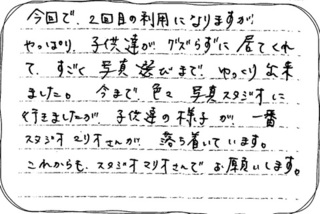 今回で、2回目の利用になりますが
やっぱり、子供達が グズらずに 居てくれ
て、すごく 写真 選びまで、ゆっくり 出来
ました。 今まで 色々 写真スタジオに
行きましたが、子供達の 様子が、一番
スタジオ マリオさんが 落ち着いています。
これからも、スタジオマリオさんで お願いします。